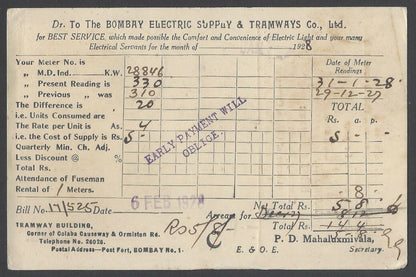 Dr. To The BOMBAY ELECTRIC SUPPLY & TRAMWAYS Co., Ltd.
for BEST SERVICE, which made possible the Comfort and Convenience of Electric Light and your many
Electrical Servants for the month of 1928
Your Meter No. is
„ M.D. Ind. K.W. 28846
„ Present Reading is 330
„ Previous „ was 310
The Difference is 20
i.e. Units Consumed are
The Rate per Unit is As. 4
i.e. the Cost of Supply is Rs. 5 -
Quarterly Min. Ch. Adj.
Less Discount @ %
Total Rs.
Attendance of Fuseman
Rental of 1 Meters.
Date of Meter Readings
31-1-28
29-12-27
TOTAL
Rs. a. p.
5 -
- 8 -
EARLY PAYMENT WILL
OBLIGE.
Bill No. 17/525
6 FEB 1928
Net Total Rs. 5 8 -
Arrears for
8 12
14 4
5 - 8 -
Rs 5/8/-
TRAMWAY BUILDING,
Corner of Colaba Causeway & Ormiston Rd.
Telephone No. 26026.
Postal Address - Post Fort, BOMBAY No. 1.
E. & O. E.
P. D. Mahaluxmivala,
Secretary.